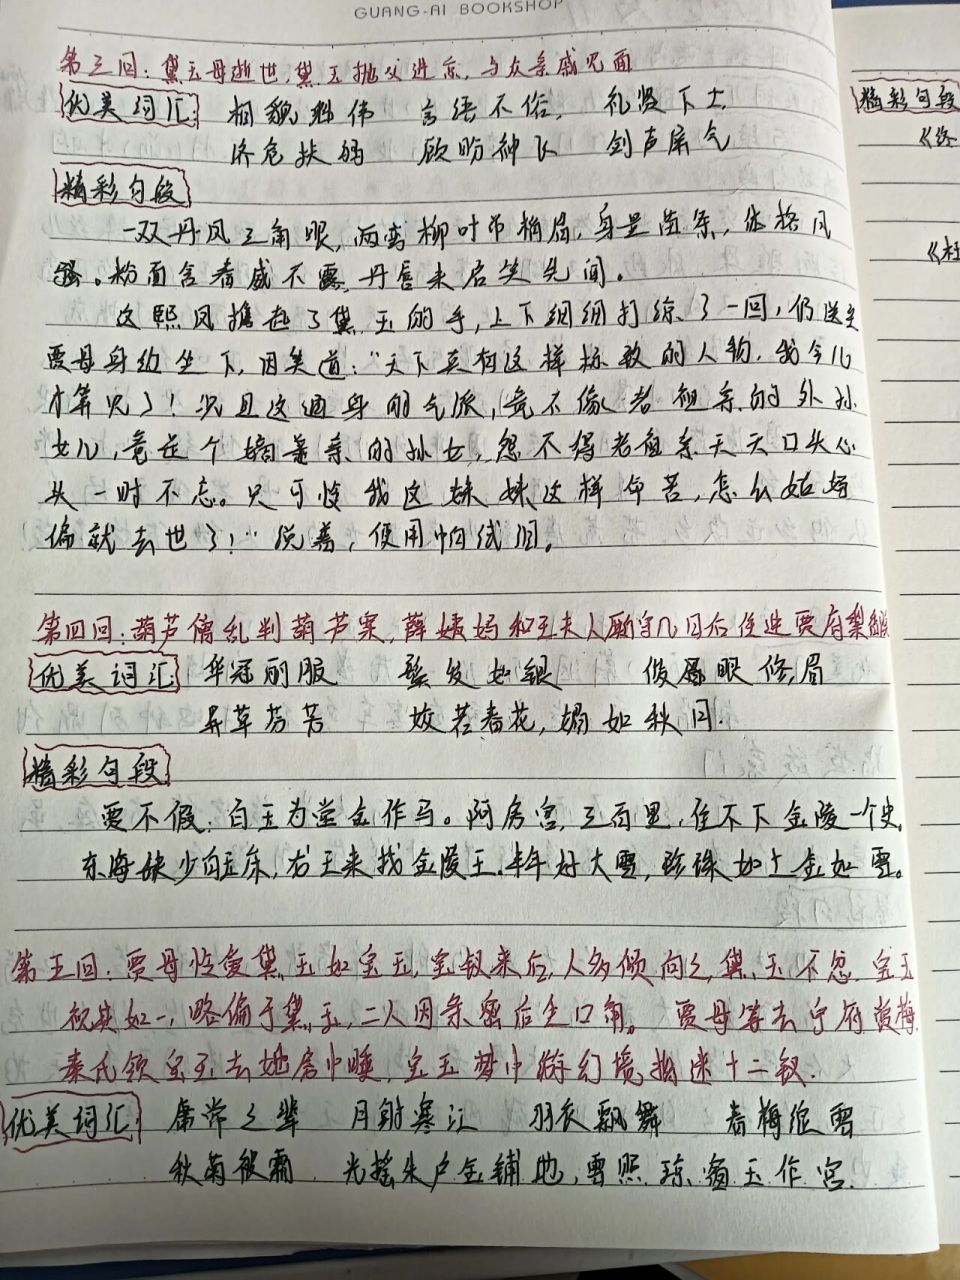 GUANG-AI BOOKSHOP
第三回：黛玉母逝世，黛玉抛父进京，与众亲戚见面
优美词汇：相貌魁伟 言语不俗， 礼贤下士，
济危扶 顾盼神飞 剑声
精彩句段
一双丹凤三角眼，两弯柳叶吊梢眉，身量苗条，体格风
骚。粉面含春威不露，丹唇未启笑先闻。
这熙凤携起了黛玉的手，上下细细打谅了一回，仍送至
贾母身边坐下，因笑道：“天下真有这样标致的人物，我今儿
才算见了！况且这通身的气派，竟不像老祖宗的外孙
女儿，竟是个嫡亲的孙女，怨不得老祖宗天天口头心
头一时不忘。只可怜我这妹妹这样命苦，怎么姑妈
偏就去世了！”说着，便用帕拭泪。
第四回：葫芦僧乱判葫芦案，薛姨妈和王夫人厮守几日后住进贾府梨香院
优美词汇：华冠丽服 鬓发如银 俊眼修眉
异草芬芳 姣若春花，媚如秋月.
精彩句段
贾不假，白玉为堂金作马。阿房宫，三百里，住不下金陵一个史
东海缺少白玉床，龙王来找金陵王.丰年好大雪，珍珠如土金如雪。
第五回：贾母怜爱黛玉如宝玉，宝钗来后，人多倾向之，黛玉不忿，宝玉
视其如一，略偏于黛玉，二人因亲密后生口角。贾母等去宁府赏梅，
秦氏领宝玉去她房中睡，宝玉梦中游幻境指迷十二钗.
优美词汇：庸常之辈 月射寒江 羽衣飘舞 春梅绽雪
秋菊被霜 光摇朱户金铺地，雪照琼窗玉作宫.
精彩句段